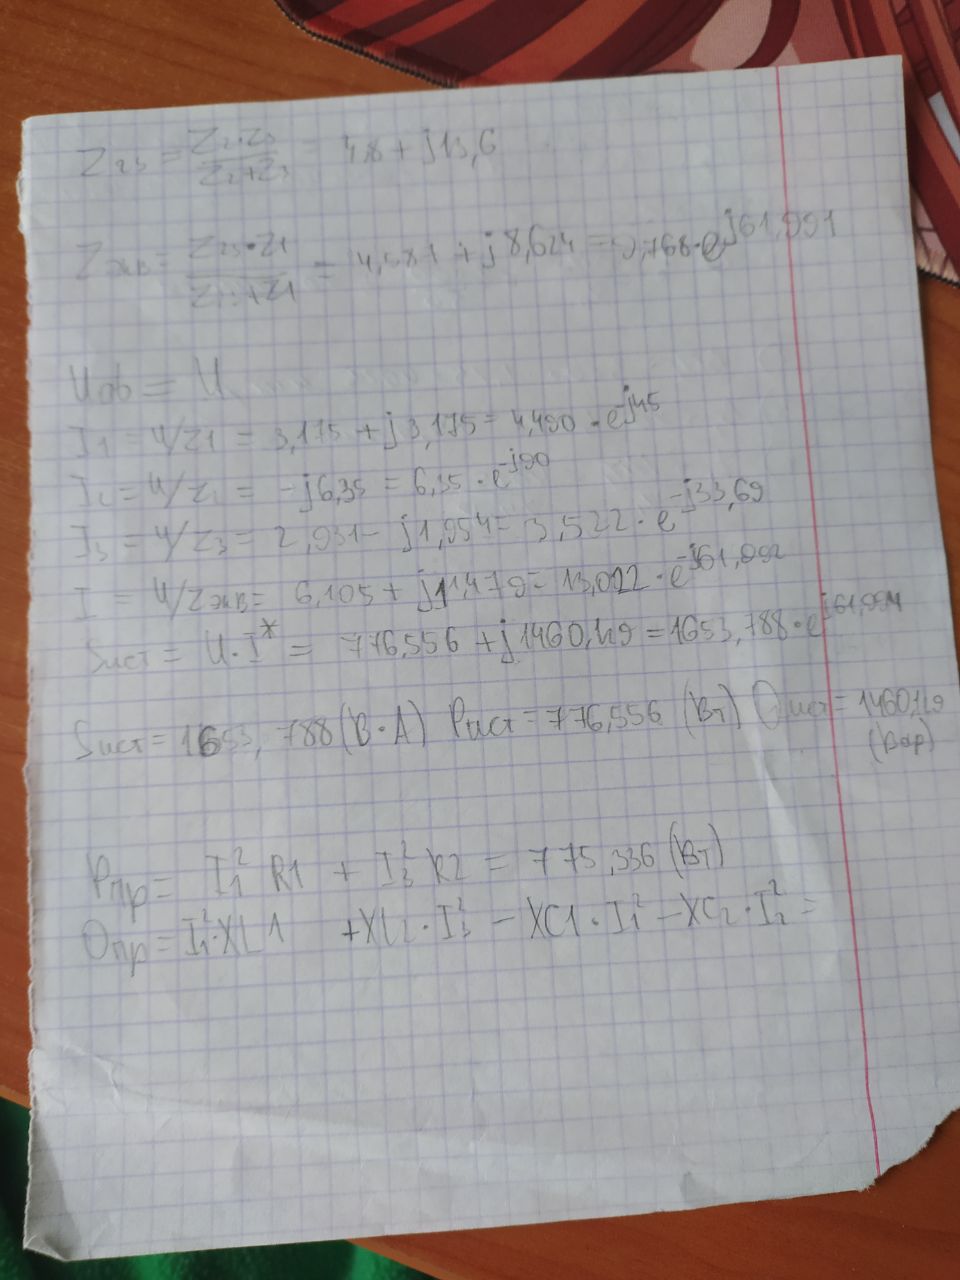 Z₂₃ = Z₂·Z₃ / Z₂+Z₃ = 4,8 + j13,6
Zэкв = Z₂₃·Z₁ / Z₂₃+Z₁ = 4,587 + j8,624 = 9,768·e^j61,991
Uab = U
I₁ = U/Z1 = 3,175 + j3,175 = 4,490·e^-j45
I₂ = U/Z₂ = -j6,35 = 6,35·e^-j90
I₃ = U/Z₃ = 2,931 - j1,954 = 3,522·e^-j33,69
I = U/Zэкв = 6,105 + j11,479 = 13,022·e^-j61,992
Sист = U·I* = 776,556 + j1460,119 = 1653,788·e^j61,994
Sист = 1653,788 (В·А) Pист = 776,556 (Вт) Qист = 1460,119
(Вар)
Pпр = I₁² R1 + I₃² R2 = 775,336 (Вт)
Qпр = I₁²·XL1 + XL2·I₃² - XC1·I₁² - XC₂·I₂² =